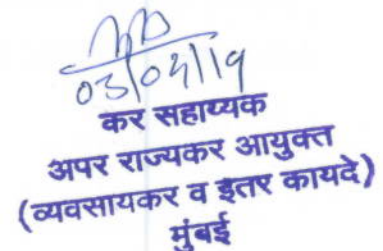 03/04/19
कर सहाय्यक
अपर राज्यकर आयुक्त
(व्यवसायकर व इतर कायदे)
मुंबई